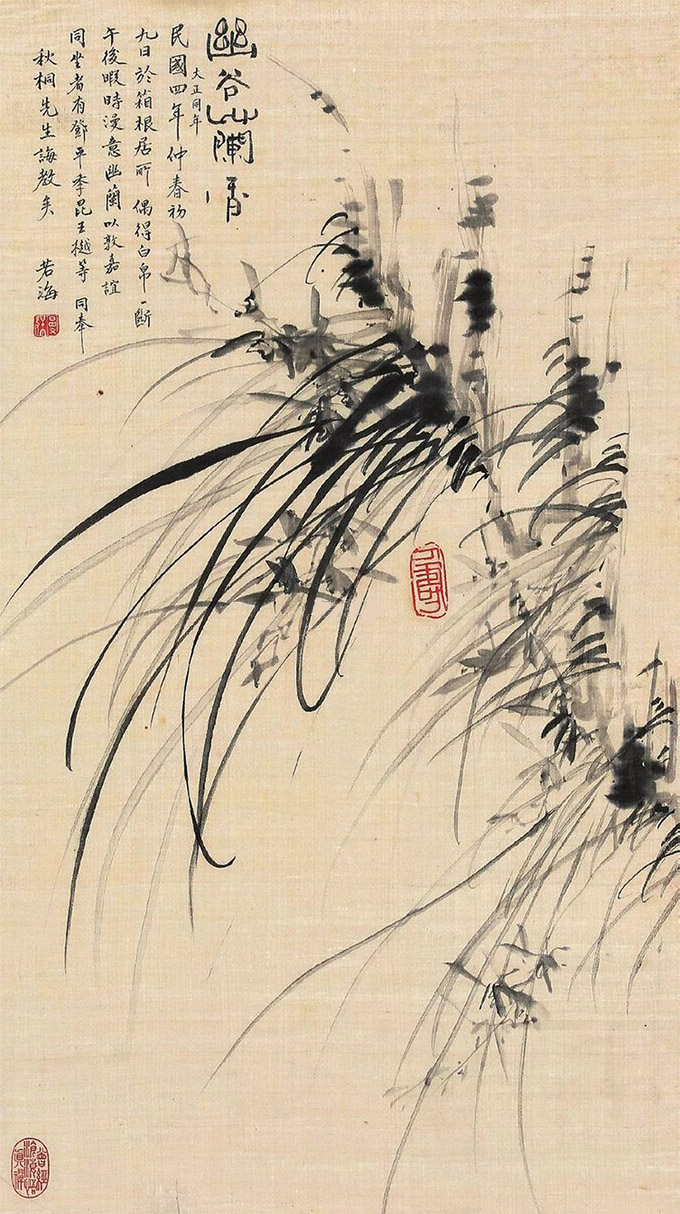 幽谷山蘭有
民國四年仲春初
大正同年
九日於箱根居所偶得白帛一斷
午後暇時漫意幽蘭以敦嘉誼
同坐者有鄧平季昆王樾等同奉
秋桐先生誨教矣 若海